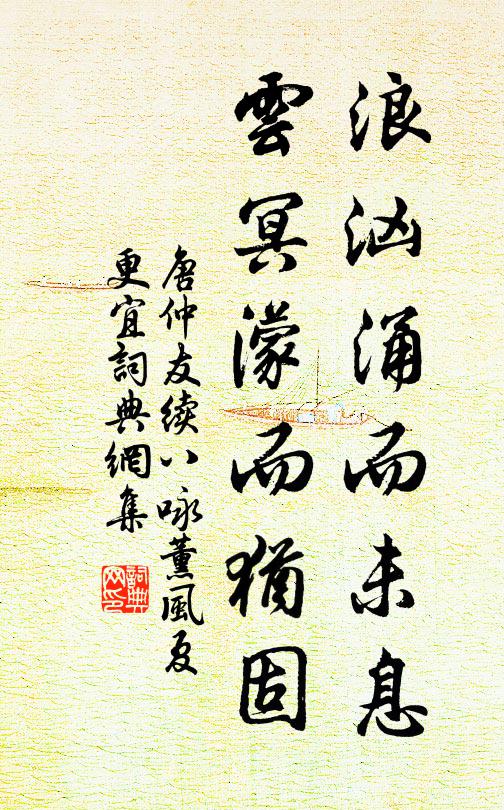 浪汹涌而未息
雲冥濛而猶固
唐仲友續八咏薰風夏
更宜詞典網集
詞典
网印